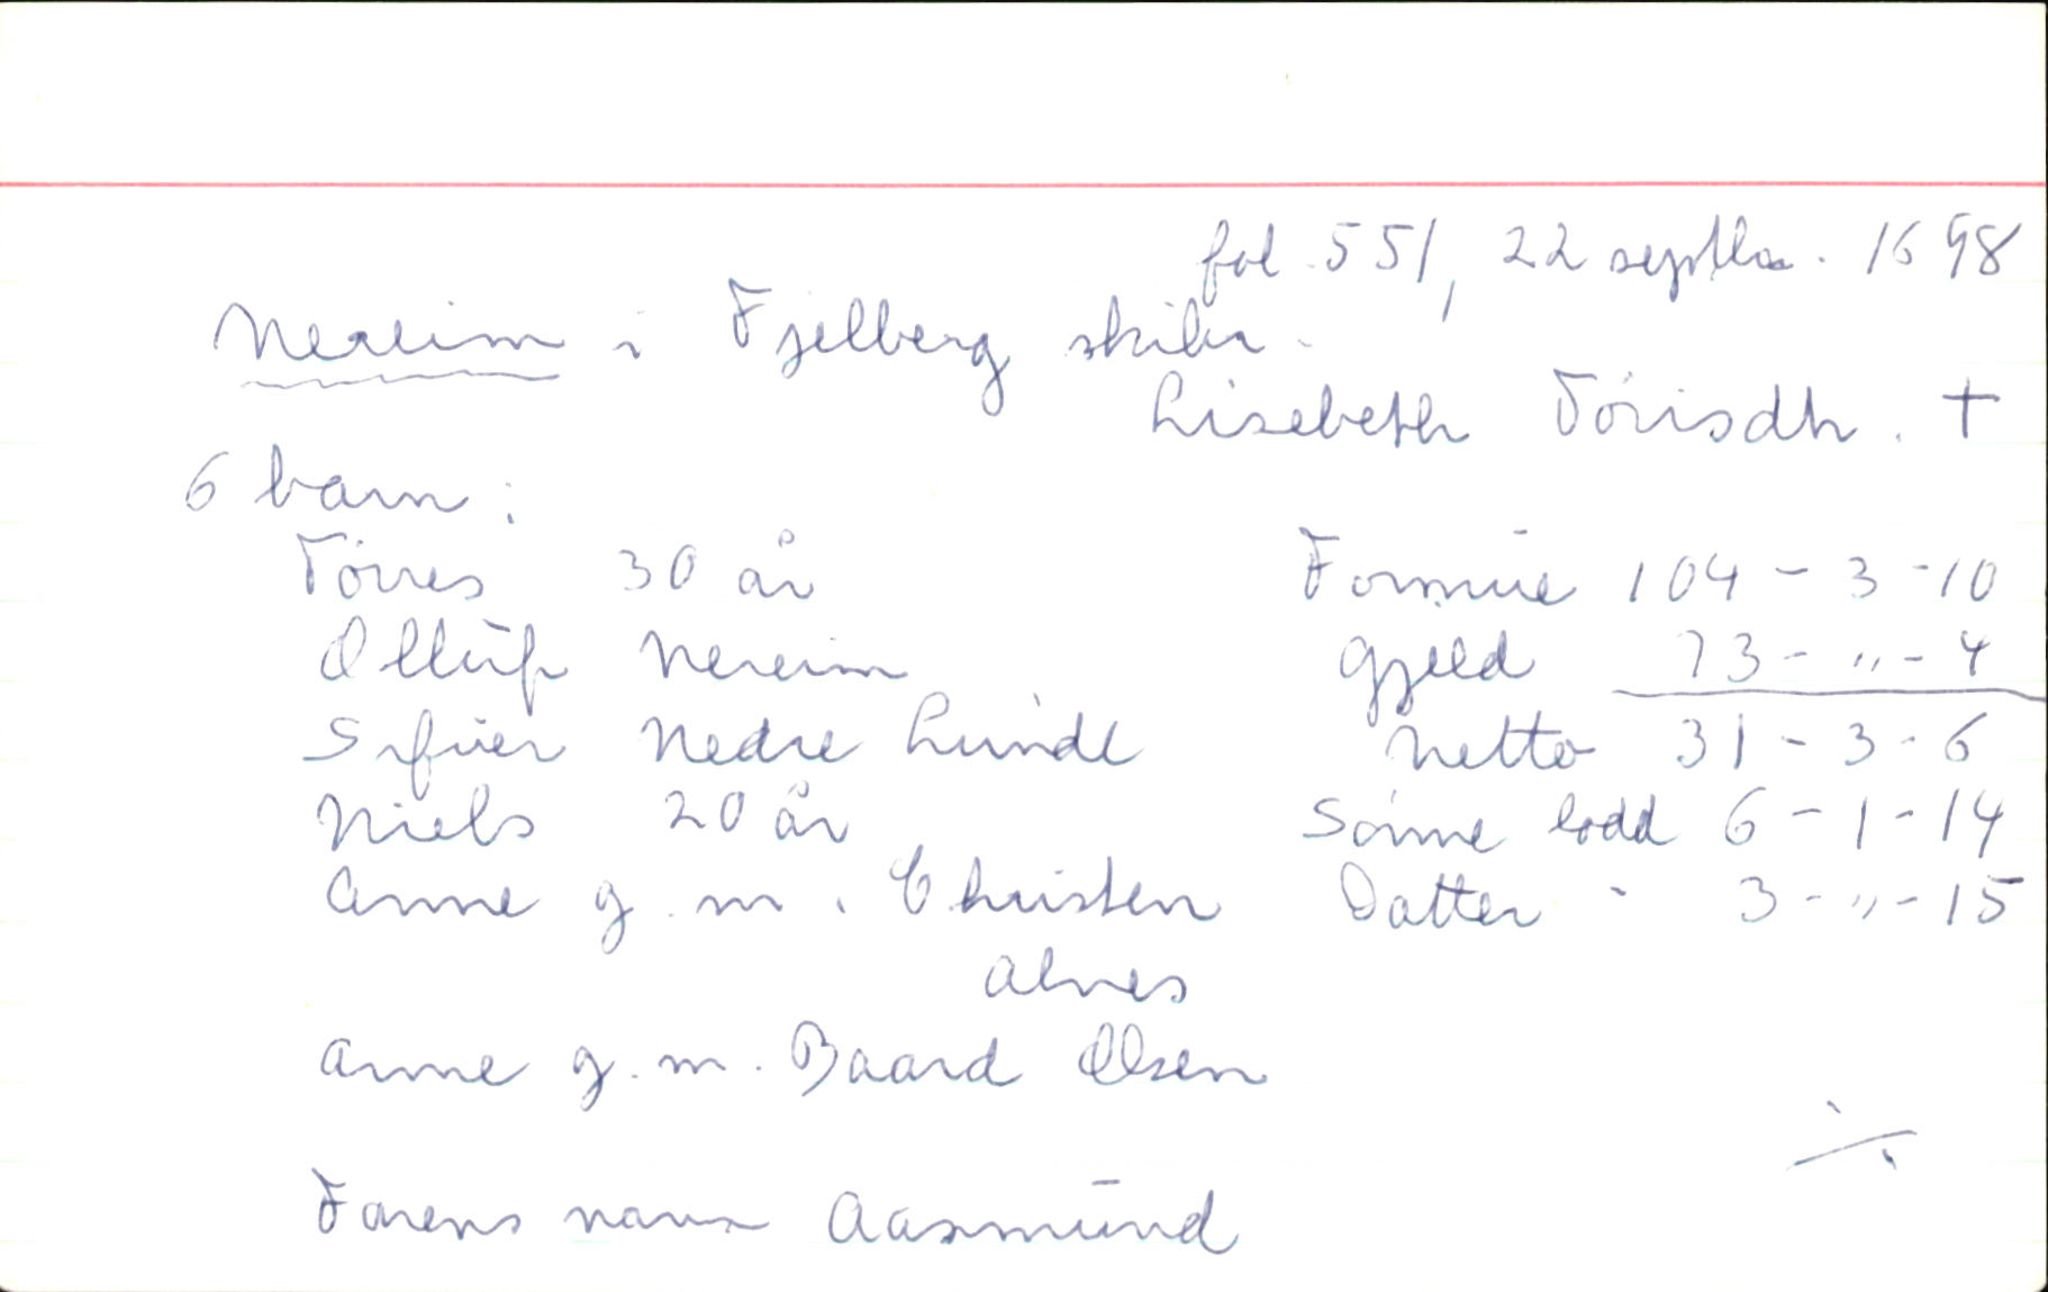 fol. 551, 22 septbr. 1698
Nereim i Fjelberg skibr.
Lisebeth Tórisdtr. +
6 barn:
Tórres 30 år Formue 104 - 3 - 10
Ollúf Nereim Gjeld 73 - " - 4
Sifúer Nedre Lúnde Netto 31 - 3 - 6
Niels 20 år Sónne lodd 6 - 1 - 14
Anne g. m. Christen Datter - 3 - " - 15
Alnes
Anne g. m. Baard Olsen
Farens navn Aasmūnd